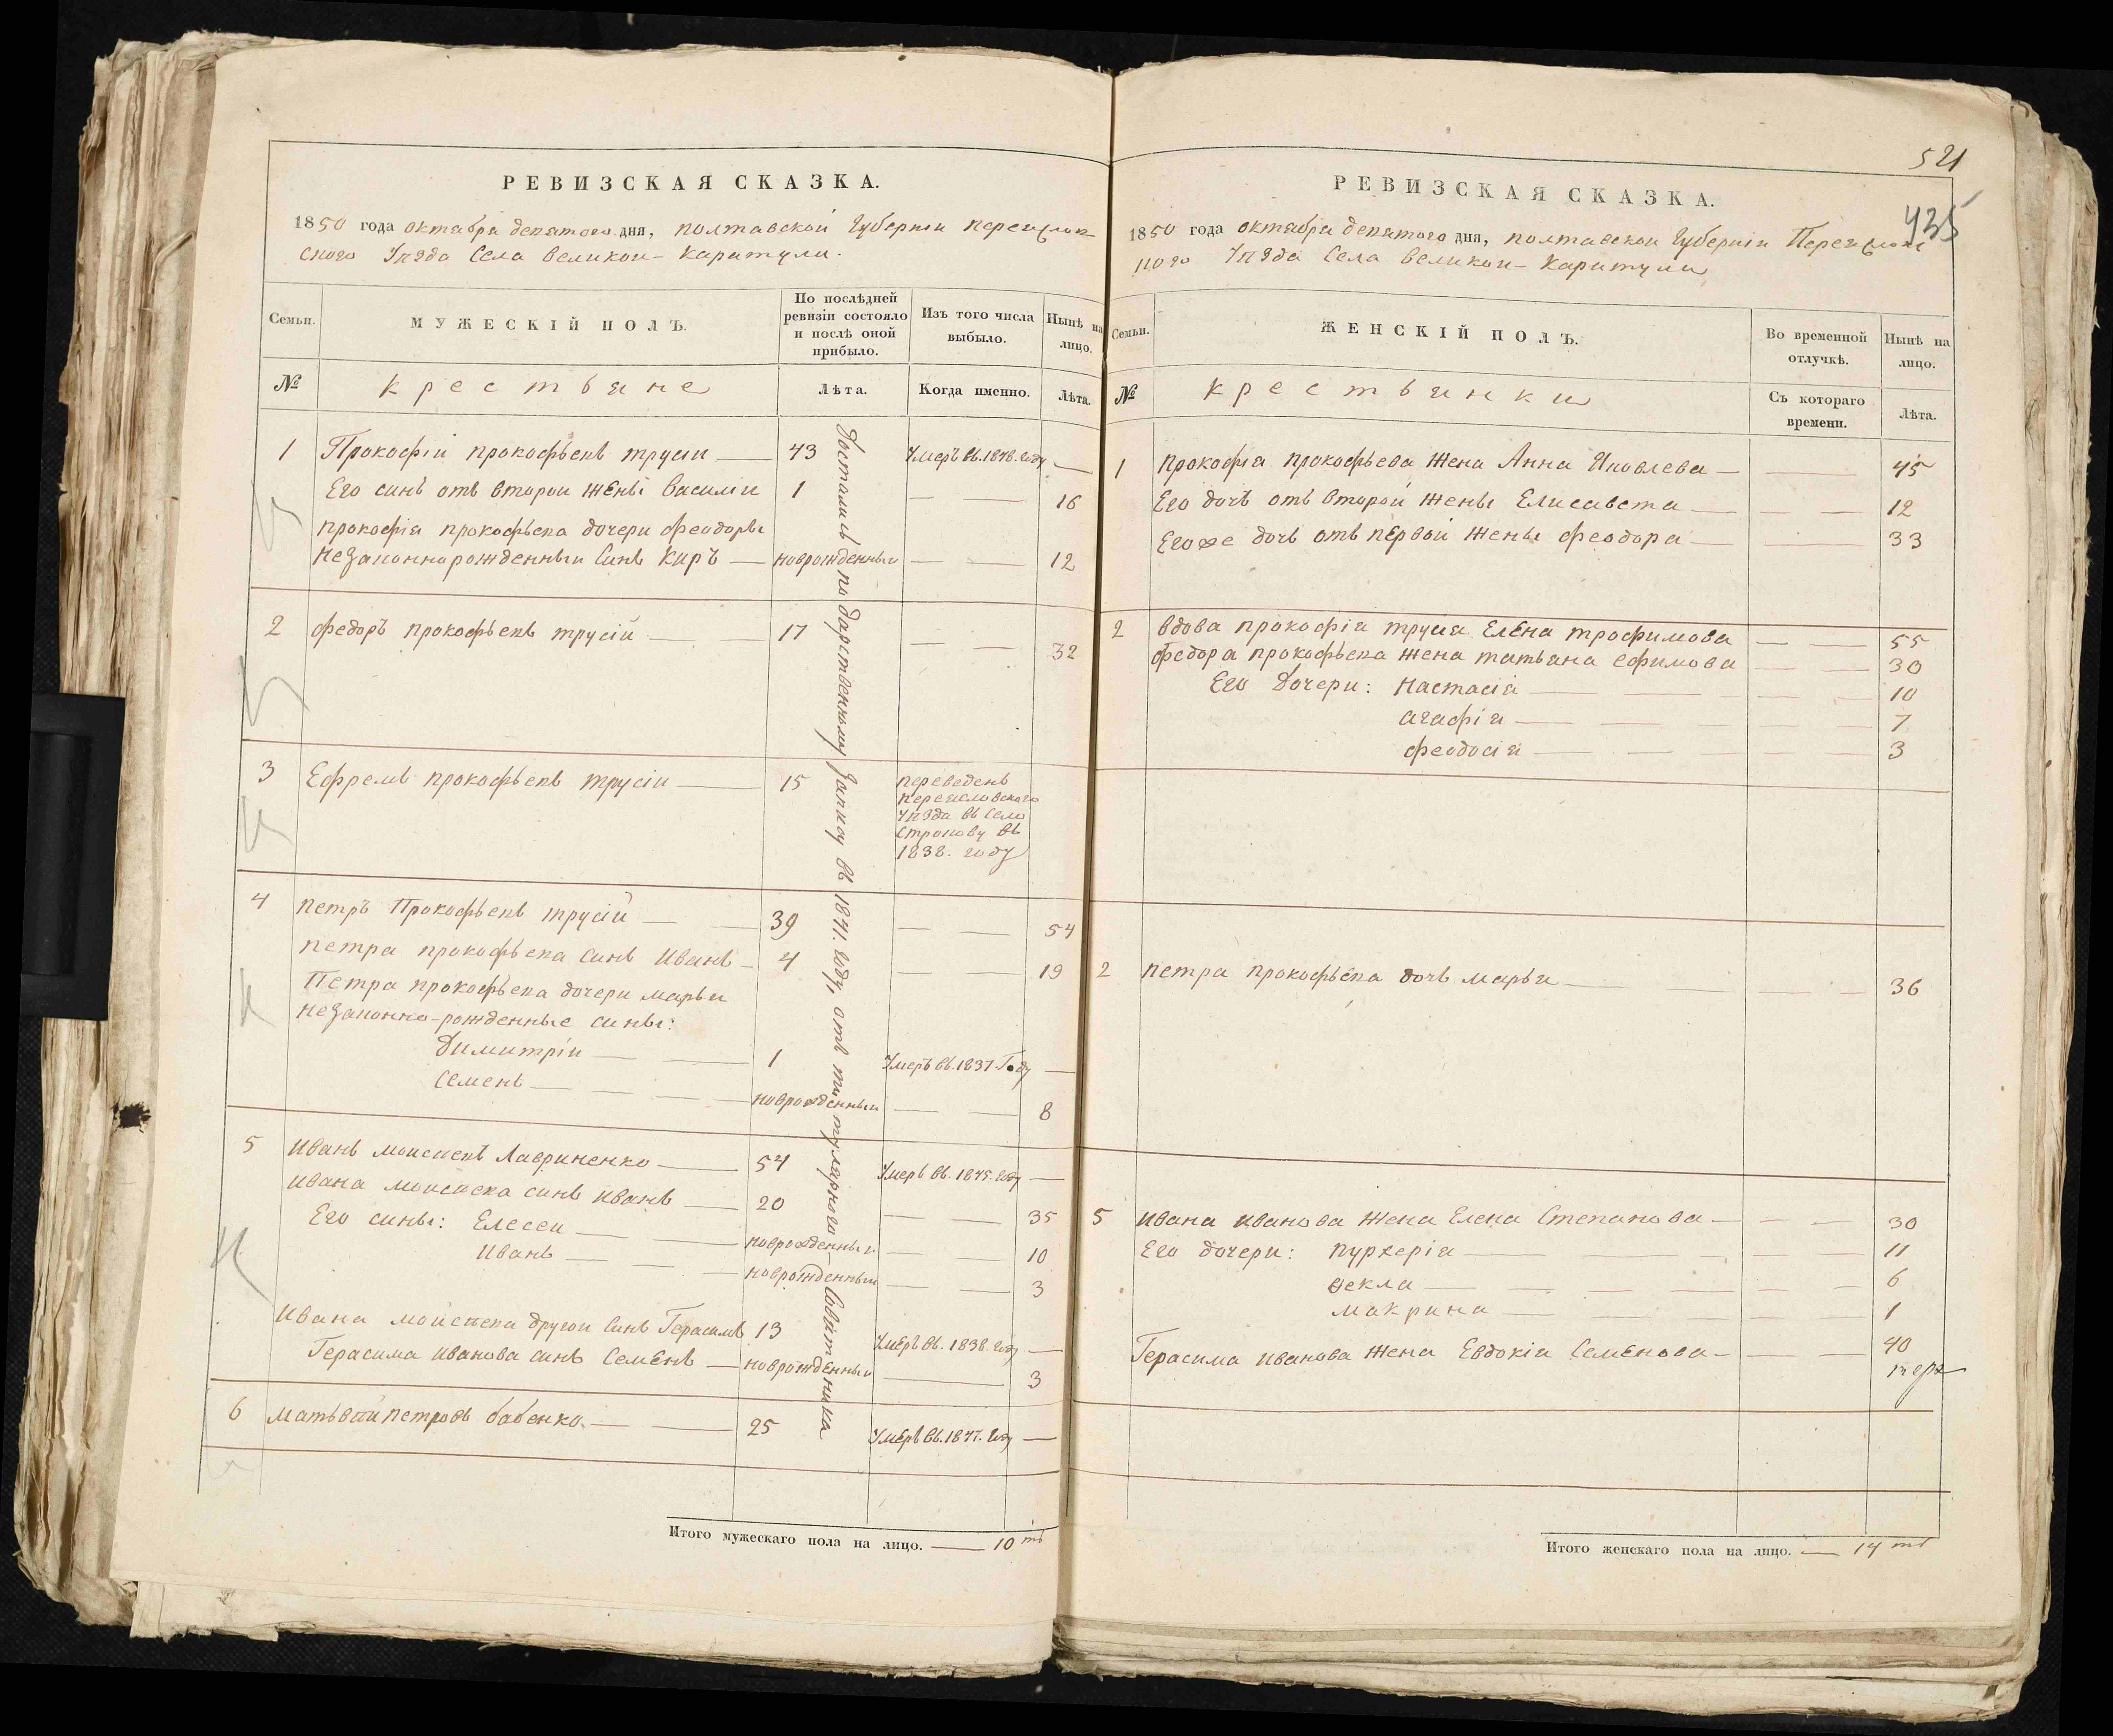 РЕВИЗСКАЯ СКАЗКА.
1850 года октабра девятого дня, полтавской Губерніи Переяслов-
ского Уѣзда Села Великои-Каритули.
Семьи.
МУЖЕСКІЙ ПОЛЪ.
По послѣдней ревизіи состояло и послѣ оной прибыло.
Изъ того числа выбыло.
Нынѣ на лицо.
№
крестьяне
Лѣта.
Когда именно.
Лѣта.
1 Прокофіи прокофьевъ трусіи 43 Умеръ въ.1848.году
Его синъ отъ второи жены Василіи 1 16
прокофія прокофьева дочери феодоры
незаконнорожденныи Синъ Киръ новрожденныи 12
2 федоръ прокофьевъ трусій 17 32
3 Ефремъ прокофьевъ трусіи 15 переведенъ
переясловского
Уѣзда въ Село
Строкову въ
1838. году
4 петръ Прокофьевъ трусій 39 54
петра прокофьева синъ Иванъ 4 19
Петра прокофьева дочери марьи
незаконно-рожденные сины:
Димитріи 1 Умеръ въ.1837 Году
Семенъ новрожденныи 8
5 Иванъ моисеевъ Лавриненко 54 Умеръ въ.1845.году
Ивана моисеева синъ иванъ 20 35
Его сины: Елесеи новрожденныи 10
Иванъ новрожденныи 3
Ивана моисеева другои Синъ Герасимъ 13 Умеръ въ. 1838.году
Герасима иванова синъ Семенъ новрожденныи 3
6 матьвѣй петровъ бабенко. 25 Умеръ въ.1847.году
Достались по дарственному Запису въ 1841. году, отъ титулярного-Совѣтника
Итого мужескаго пола на лицо. 10 ть
521
435
РЕВИЗСКАЯ СКАЗКА.
1850 года октабра девятого дня, полтавской Губерніи Переяслов
ного Уѣзда Села Великои-Каритули
Семьи.
ЖЕНСКІЙ ПОЛЪ.
Во временной отлучкѣ.
Нынѣ на лицо.
№
крестьянки
Съ котораго времени.
Лѣта.
1 прокофія прокофьева жена Анна Яковлева 45
Его дочъ отъ второй жены Елисавета 12
Егоже дочъ отъ первой жены феодора 33
2 вдова прокофія трусія Елена трофимова 55
федора прокофьева жена татьана ефимова 30
Его дочери: настасія 10
агафія 7
феодосія 3
2 петра прокофьева дочъ марья 36
5 ивана иванова жена Елена Степанова 30
Его дочери: пурхерія 11
Ѳекла 6
макрина 1
Герасима иванова жена Евдокія Семенова 40
Итого женскаго пола на лицо. 14 ть